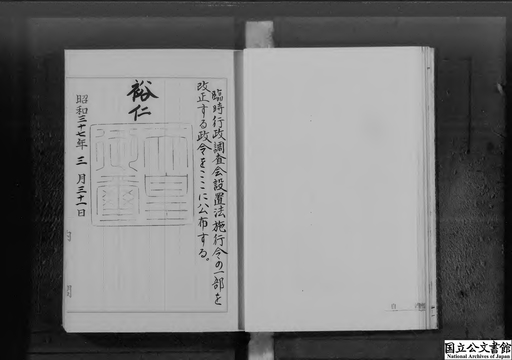 臨時行政調査会設置法施行令の一部を
改正する政令をここに公布する。
裕仁
天皇御璽
昭和三十七年三月三十一日
国立公文書館
National Archives of Japan